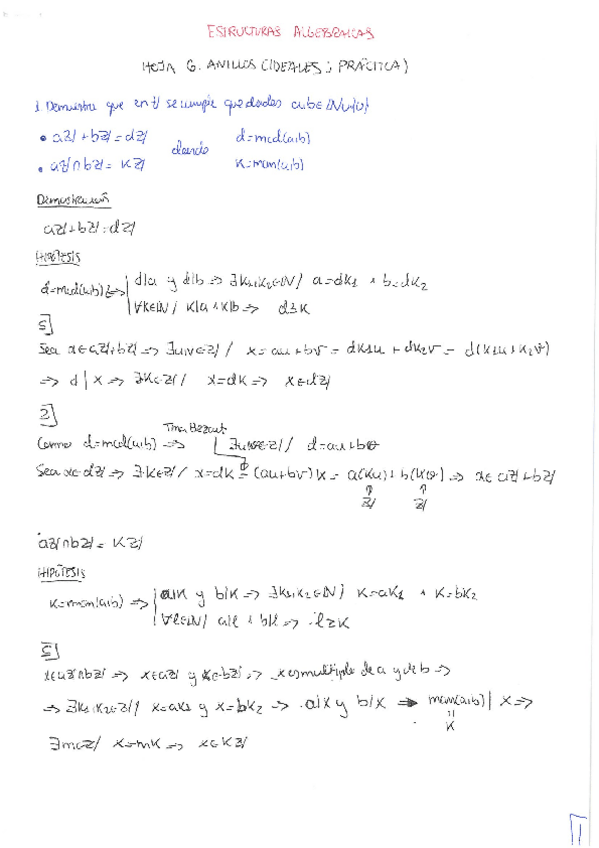 ESTRUCTURAS ALGEBRAICAS
HOJA 6. ANILLOS (IDEALES; PRÁCTICA)
1 Demuestra que en ℤ se cumple que dados a,b∈ℕ∪{0}
• aℤ + bℤ = dℤ donde d=mcd(a,b)
• aℤ∩bℤ = Kℤ K=mcm(a,b)
Demostración
aℤ+bℤ=dℤ
HIPÓTESIS
d=mcd(a,b) => | d|a y d|b => ∃k₁,k₂∈ℕ/ a=dk₁ ∧ b=dk₂
∀k∈ℕ/ k|a ∧ k|b => d≥k
⊆]
Sea x∈aℤ+bℤ => ∃u,v∈ℤ/ x=au+bv = dk₁u + dk₂v = d(k₁u+k₂v)
=> d|x => ∃k∈ℤ/ x=dk => x∈dℤ
⊇]
Tma Bezout
Como d=mcd(a,b) => ∃u,v∈ℤ/ d=au+bv
Sea x∈dℤ => ∃k∈ℤ/ x=dk = (au+bv)k = a(ku)+b(kv) => x∈aℤ+bℤ
ℤ ℤ
aℤ∩bℤ = Kℤ
HIPÓTESIS
K=mcm(a,b) => | a|K y b|K => ∃k₁,k₂∈ℕ/ K=ak₁ ∧ K=bk₂
∀l∈ℕ/ a|l ∧ b|l => l≥K
⊆]
x∈aℤ∩bℤ => x∈aℤ y x∈bℤ => x es multiplo de a y de b =>
=> ∃k₁,k₂∈ℤ/ x=ak₁ y x=bk₂ => a|x y b|x => mcm(a,b)|x =>
K
∃m∈ℤ/ x=mK => x∈Kℤ
1